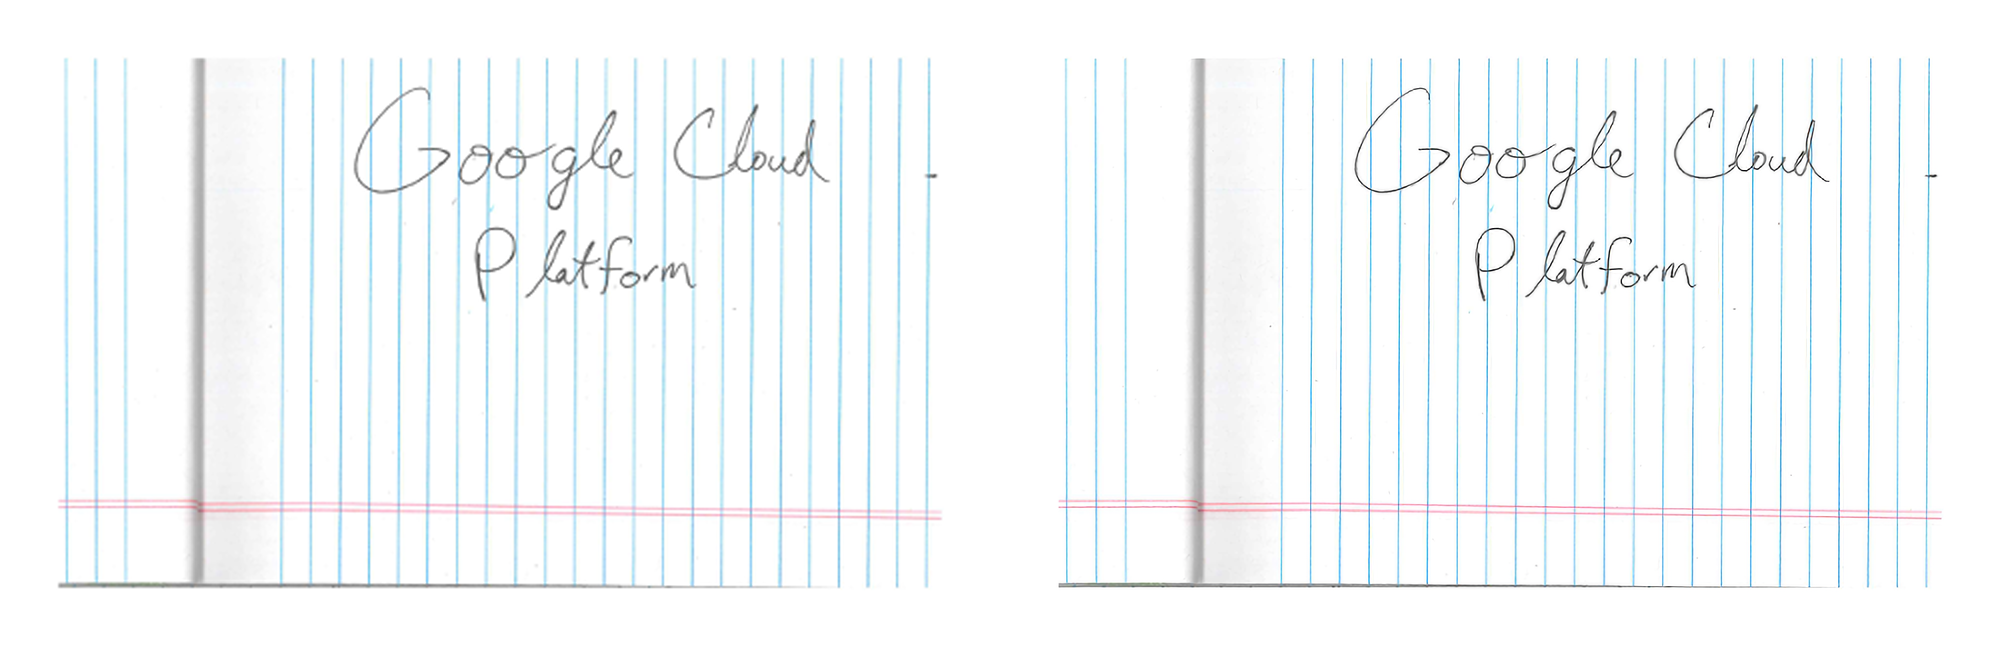 Google Cloud
Platform
Google Cloud
Platform